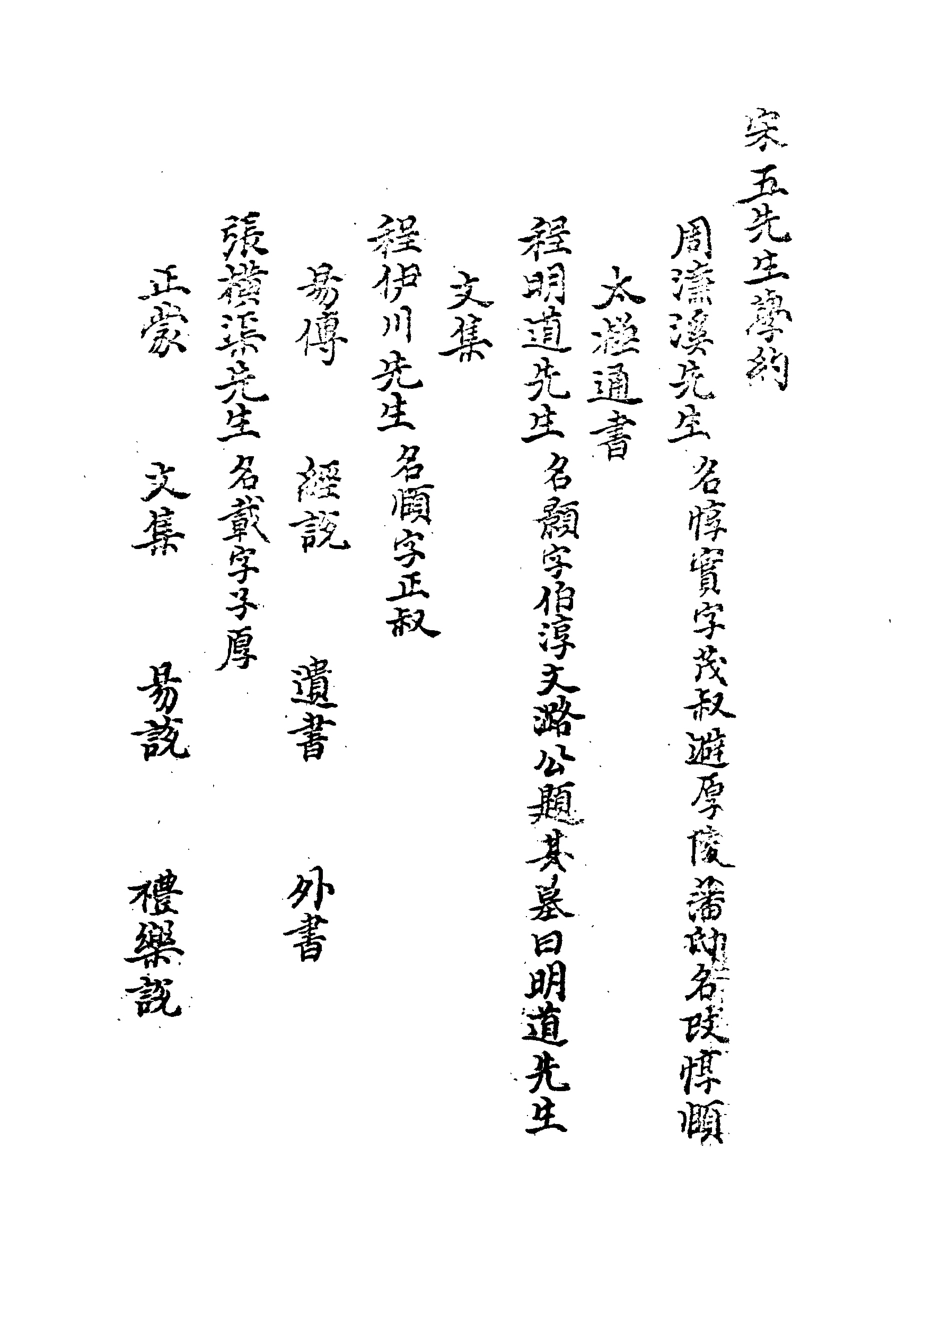 宋五先生學約
周濂溪先生 名惇實字茂叔避厚陵藩邸名改惇頤
太極通書
程明道先生 名顥字伯淳文潞公題其墓曰明道先生
文集
程伊川先生 名頤字正叔
易傳 經說 遺書 外書
張橫渠先生 名載字子厚
正蒙 文集 易說 禮樂說